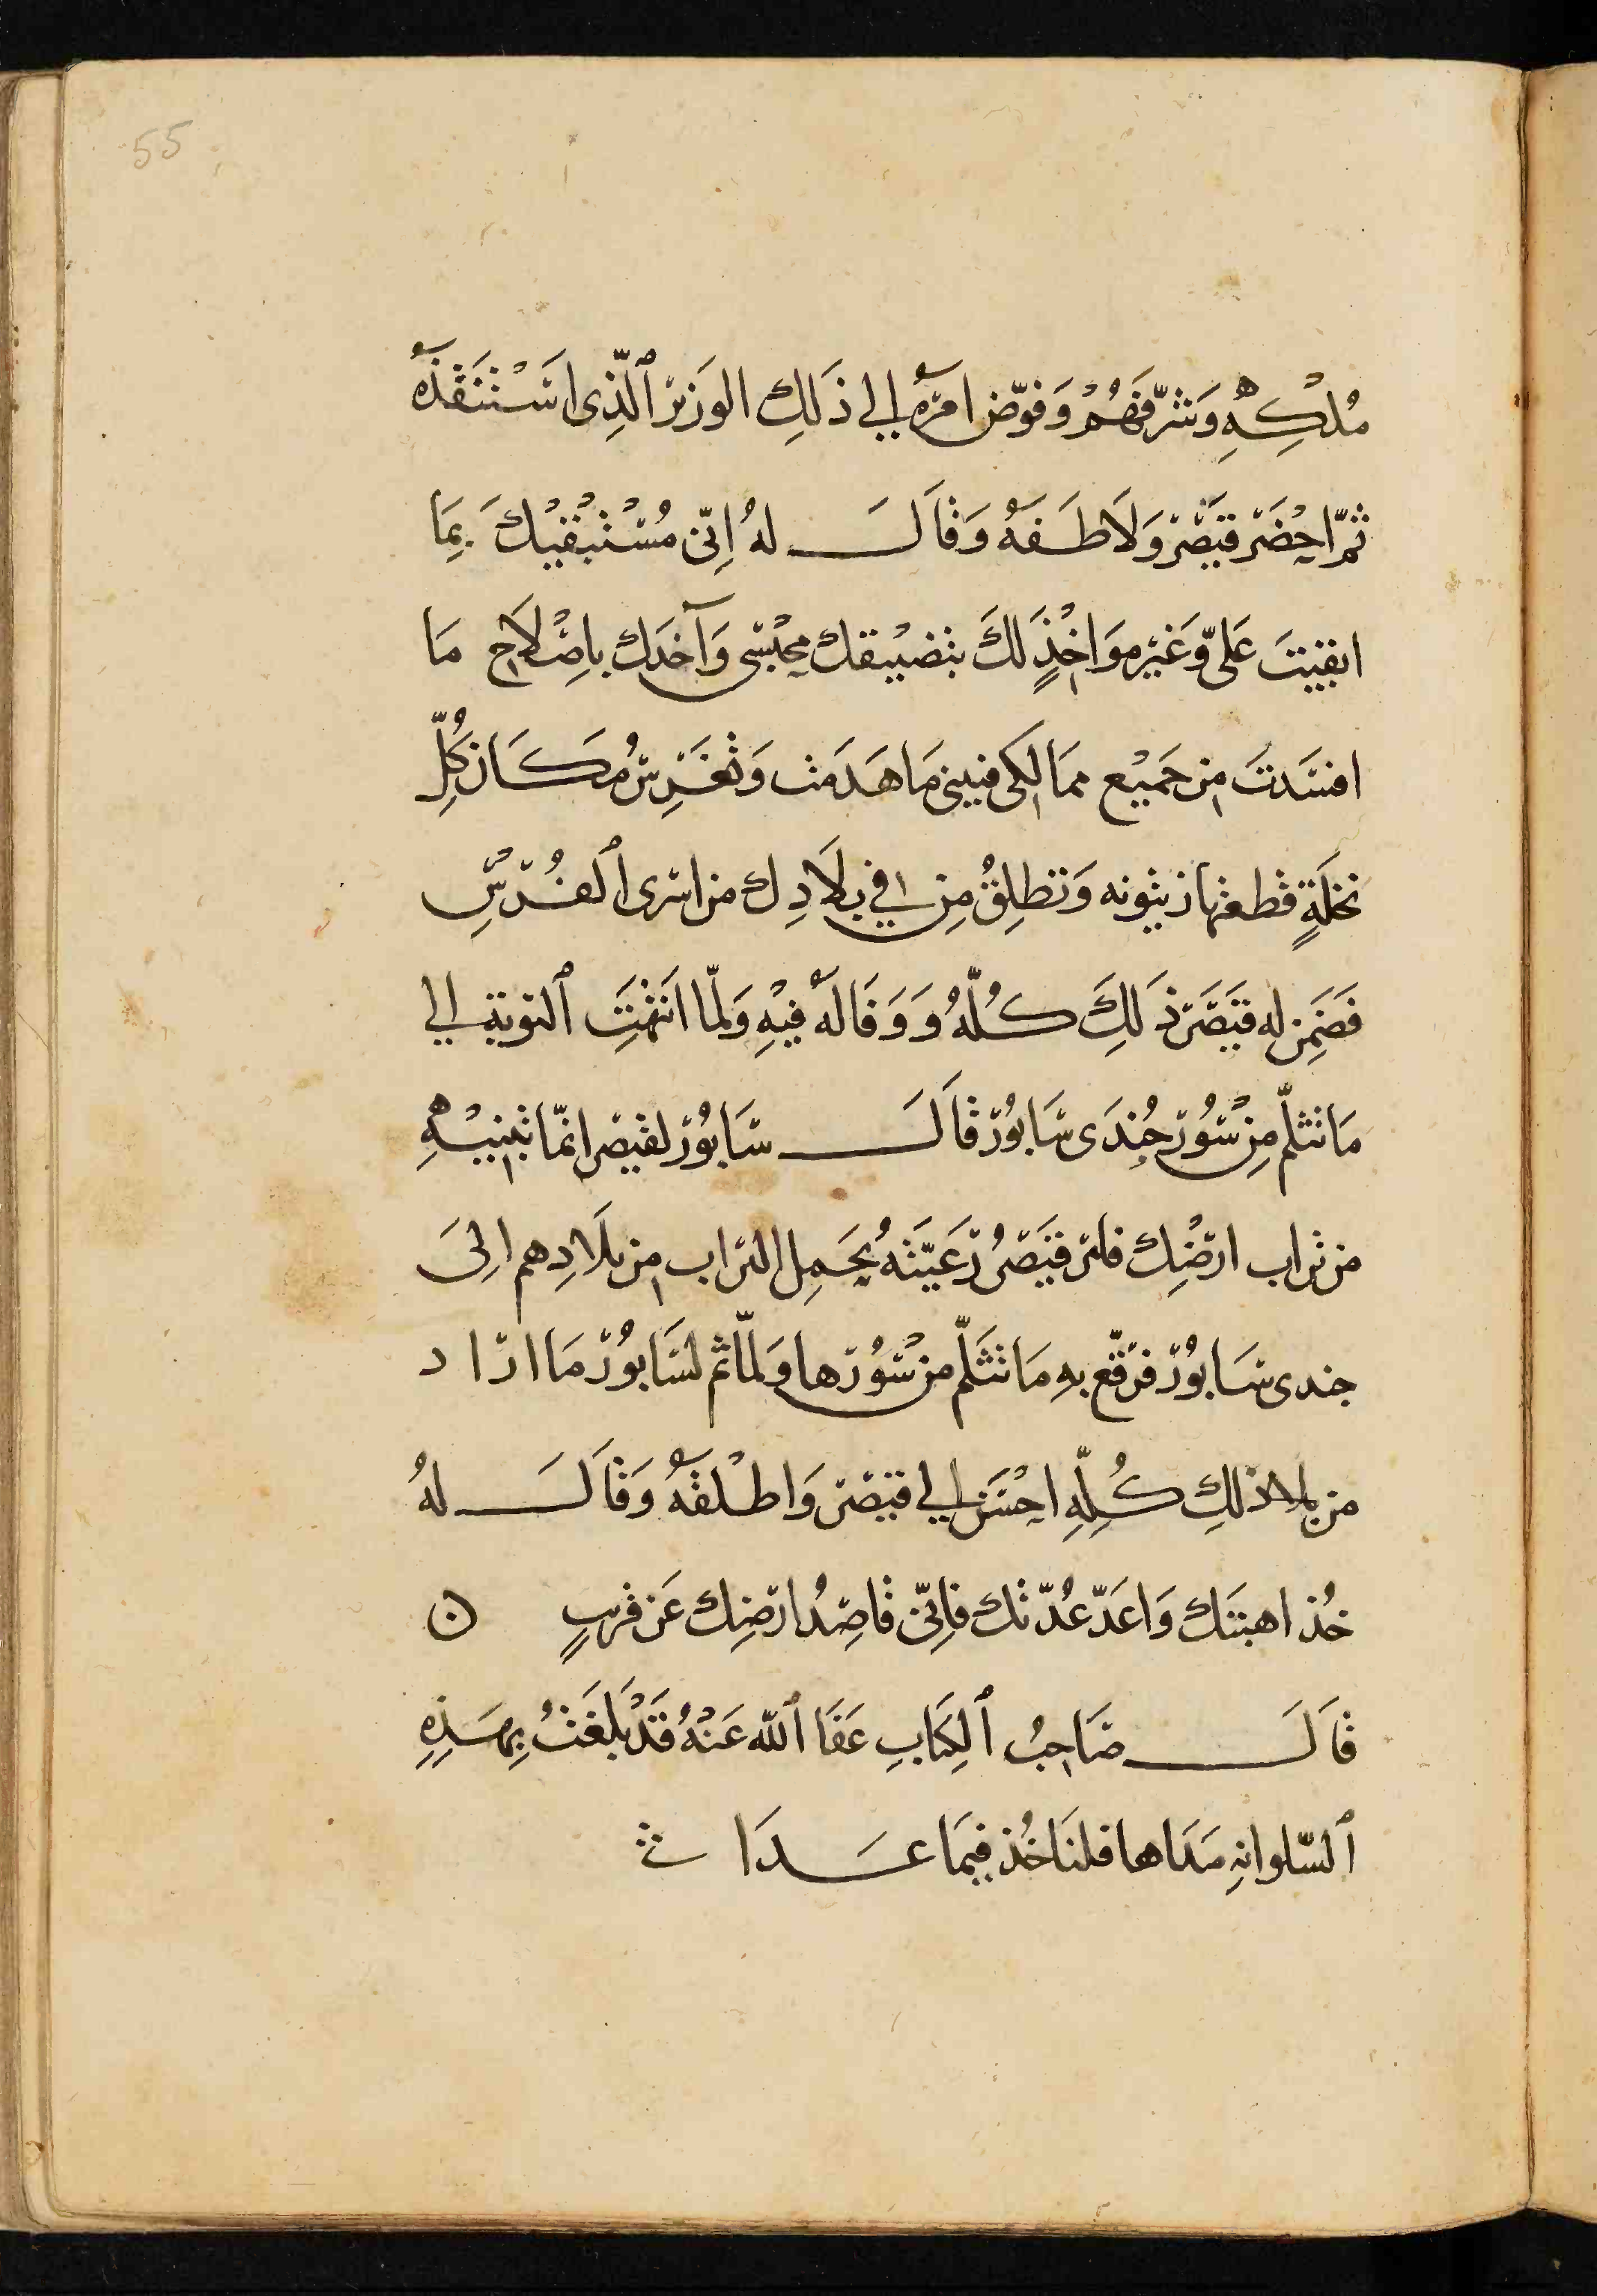 55
مُلْكِهِ وَشَرَّفَهُمْ وَفوّض امرَهُ إلي ذَلِكِ الوَزير ٱلّذِى اسْتنَقذَهُ
ثمَّ احْضَرَ قيَصَرْ وَلَاطَفَهُ وَقَالَ لهُ اِنّى مُسْتَبْقيْكَ بِمَا
ابقيتَ عَلىّ وَغيْر موَاخِذٍ لَكَ بتضييْقك محْبَسى وَآخذك باصْلَاحِ مَا
افسَدتَ مِن جَميْع ممَالكى فتبنى مَا هَدَمت وَتَغَرِسُ مَكَان كُلِّ
نخلَةٍ قطعتها زيتونه وَتطلِقُ مِن في بلَادِك من اسَرى ٱلفُرْسِ
فَضَمِن له قيَصَر ذَلِكَ كُلّهُ وَوَفَا لَهُ فيْهِ وَلَمّا انتَهَتِ ٱلتوبة الي
مَا تثلّم مِن سُوْر جُندَى سَابُوْر قَالَ سَابُوْر لقيصر انمّا تبنيْهِ
من تراب ارضِْك فامَر قيَصَرُ رَعيّتَهُ بحَمِل التراب مِن بلَادِهم الِىَ
جندى سَابُوْر فرَقّع بهِ مَا تثَلّم من سُوْرها وَلمّا تم لسَابُوْر مَا اراد
من بلاد ذلِكِ كُلِّهِ احْسَن إلي قيصَر وَاطْلقَهُ وَقَالَ لهُ
خُذ اهبتَك وَاعَدّ عُدّتك فاِنّى قَاصِدُ ارضِك عَن قريبٍ ن
قَالَ صَاحِبُ ٱلكِتَابِ عَفَا ٱللّه عَنْهُ قَدْ بَلغَتُ بِهَذِهِ
ٱلسّلوانةِ مَدَاها فلنَاخُذ فيمَا عَدَا